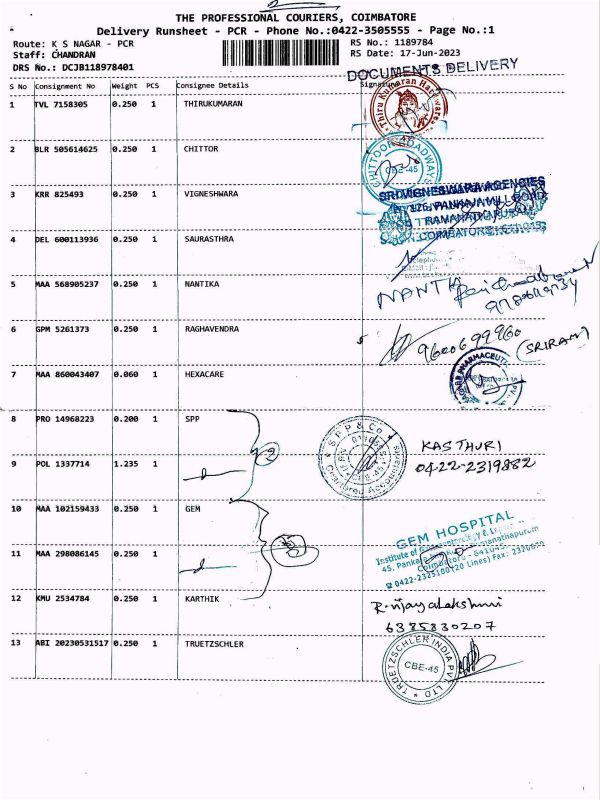 2
THE PROFESSIONAL COURIERS, COIMBATORE
Delivery Runsheet - PCR - Phone No.:0422-3505555 - Page No.:1
Route: K S NAGAR - PCR RS No.: 1189784
Staff: CHANDRAN RS Date: 17-Jun-2023
DRS No.: DCJB118978401
DOCUMENTS DELIVERY
S No Consignment No Weight PCS Consignee Details Signature
1 TVL 7158305 0.250 1 THIRUKUMARAN
Thiru Kumaran Hardwares
2 BLR 505614625 0.250 1 CHITTOR
CHITTOOR ROADWAYS
CBE-45
3 KRR 825493 0.250 1 VIGNESHWARA
SRI VIGNESWARA AGENCIES
126, PANKAJA MILL ROAD
RAMANATHAPURAM
COIMBATORE
4 DEL 600113936 0.250 1 SAURASTHRA
5 MAA 568905237 0.250 1 NANTIKA
6 GPM 5261373 0.250 1 RAGHAVENDRA
9600699960
(SRIRAM)
7 MAA 860043407 0.060 1 HEXACARE
8 PRO 14968223 0.200 1 SPP
2
SPP & Co.
Chartered Accountants
KASTHURI
0422-2319882
9 POL 1337714 1.235 1
10 MAA 102159433 0.250 1 GEM
GEM HOSPITAL
Institute of
45, Pankaja Mill Road, Ramanathapuram
Coimbatore - 641045
0422-2325100 (20 Lines) Fax:
11 MAA 298086145 0.250 1
12 KMU 2534784 0.250 1 KARTHIK
R-vijayalakshmi
6385830207
13 ABI 20230531517 0.250 1 TRUETZSCHLER
TRUETZSCHLER INDIA PVT. LTD
CBE-45